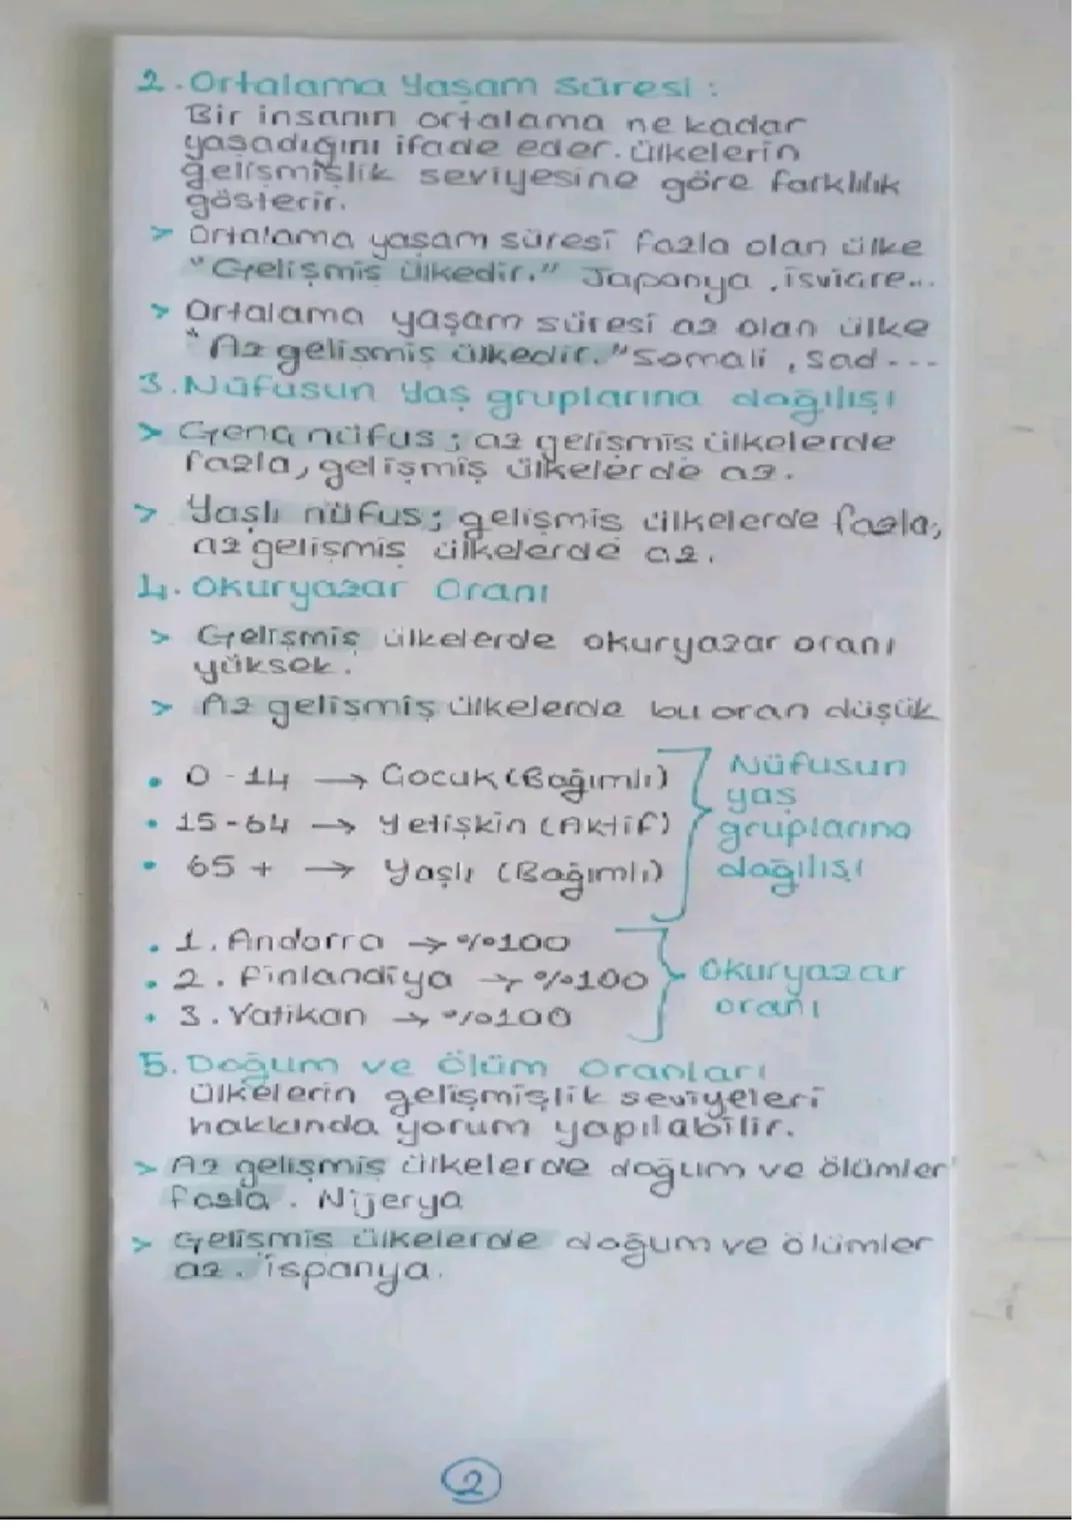 2. Ortalama Yaşam Süresi :
Bir insanın ortalama ne kadar
yaşadığını ifade eder. Ülkelerin
gelişmişlik seviyesine göre farklılık
gösterir.
> Ortalama yaşam süresi fazla olan ülke
"Gelişmiş ülkedir." Japonya, İsviçre...
> Ortalama yaşam süresi az olan ülke
"Az gelişmiş ülkedir." Somali, Sad---
3. Nüfusun Yaş gruplarına dağılışı
> Genç nüfus ; az gelişmiş ülkelerde
fazla, gelişmiş ülkelerde az.
> Yaşlı nüfus ; gelişmiş ülkelerde fazla,
az gelişmiş ülkelerde az.
4. Okuryazar Oranı
> Gelişmiş ülkelerde okuryazar oranı
yüksek.
> Az gelişmiş ülkelerde bu oran düşük
• 0-14 → Çocuk (Bağımlı)
• 15-64 → Yetişkin (Aktif)
• 65+ → Yaşlı (Bağımlı)
Nüfusun
yaş
gruplarına
dağılışı
• 1. Andorra → %100
• 2. Finlandiya → %100
• 3. Vatikan → %100
Okuryazar
oranı
5. Doğum ve Ölüm Oranları
Ülkelerin gelişmişlik seviyeleri
hakkında yorum yapılabilir.
> Az gelişmiş ülkelerde doğum ve ölümler
fazla. Nijerya
> Gelişmiş ülkelerde doğum ve ölümler
az. İspanya.
2